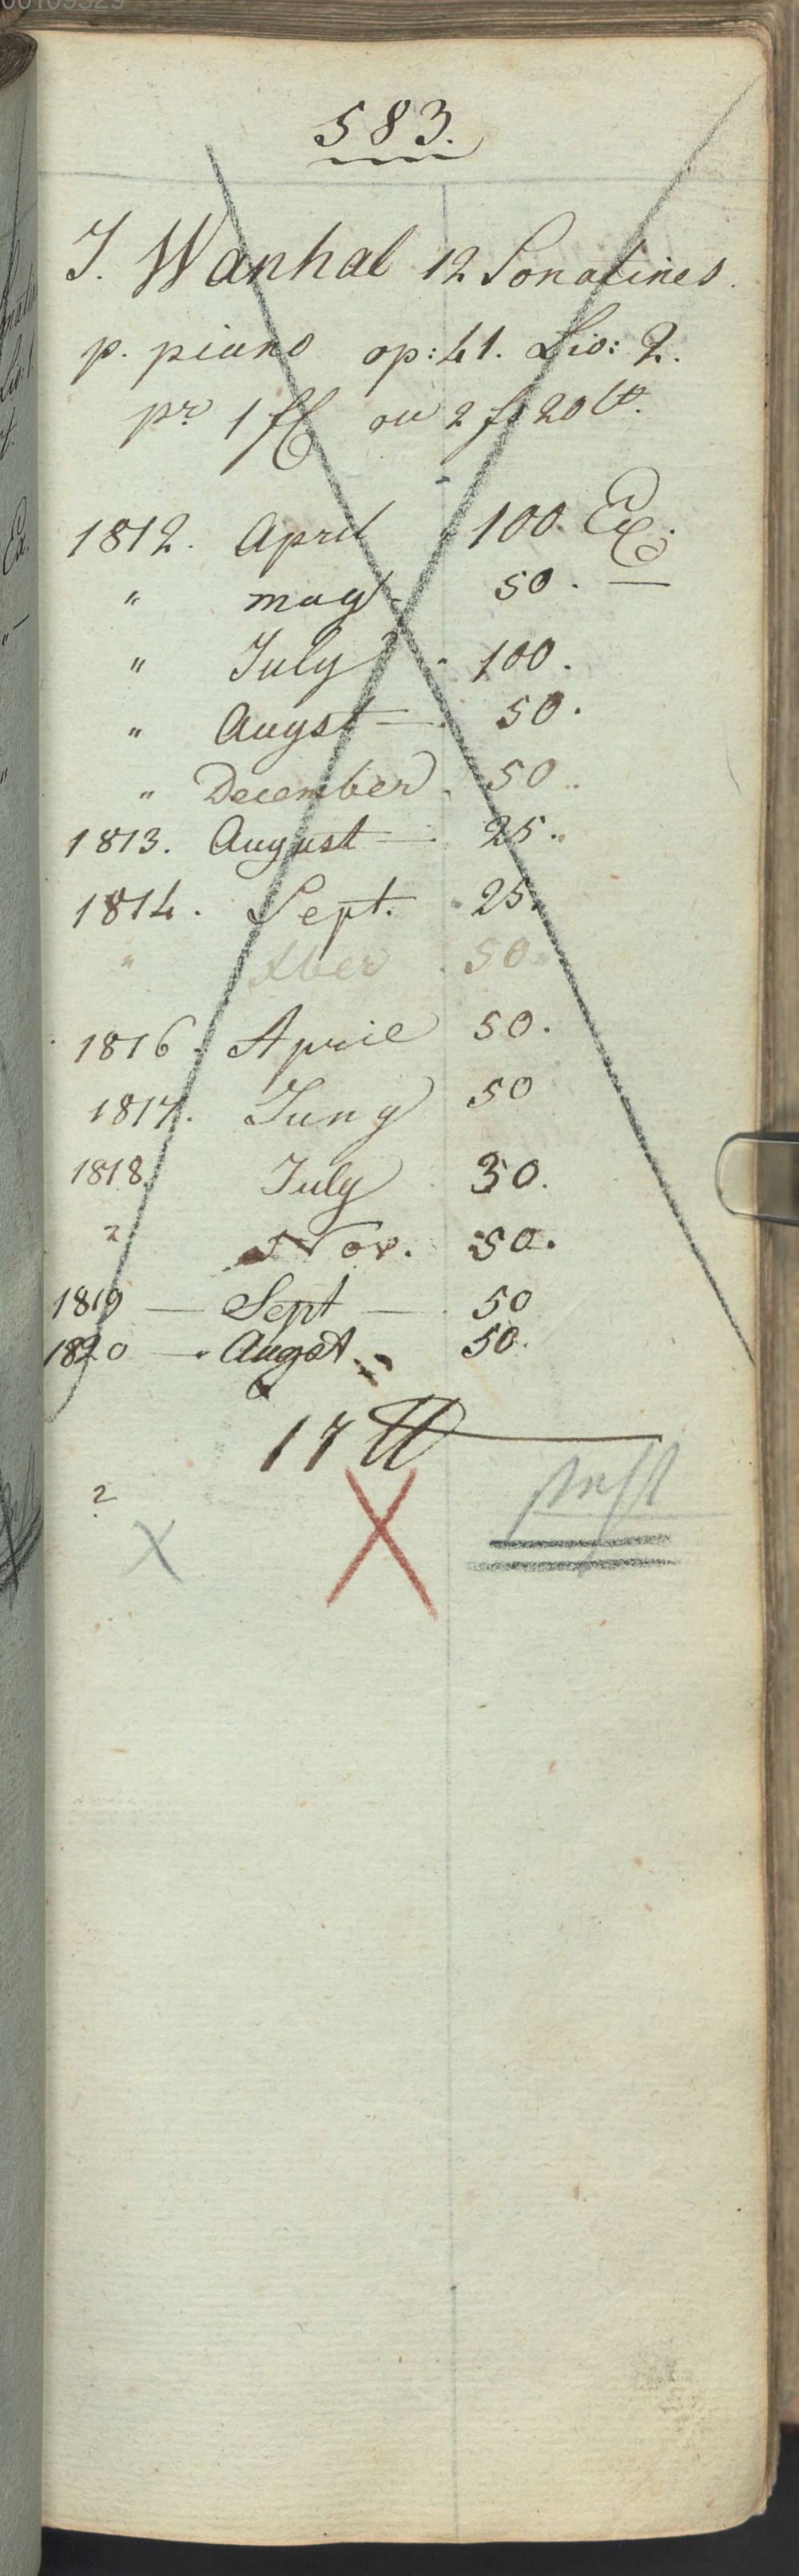 00109529
583.
J. Wanhal 12 Sonatines.
p. piano op: 41. Liv: 2.
pr 1 fl ou 2 fs 20 ct.
1812. April 100. Ex.
" may 50. —
" July 100.
" Augst — 50.
" December 50.
1813. August — 25.
1814. Sept. 25.
" Xber 50
1816. April 50.
1817. Juny 50
1818. July 30.
" Nov. 50.
1819 — Sept — 50
1820 — Augst 50.
17
2
X X